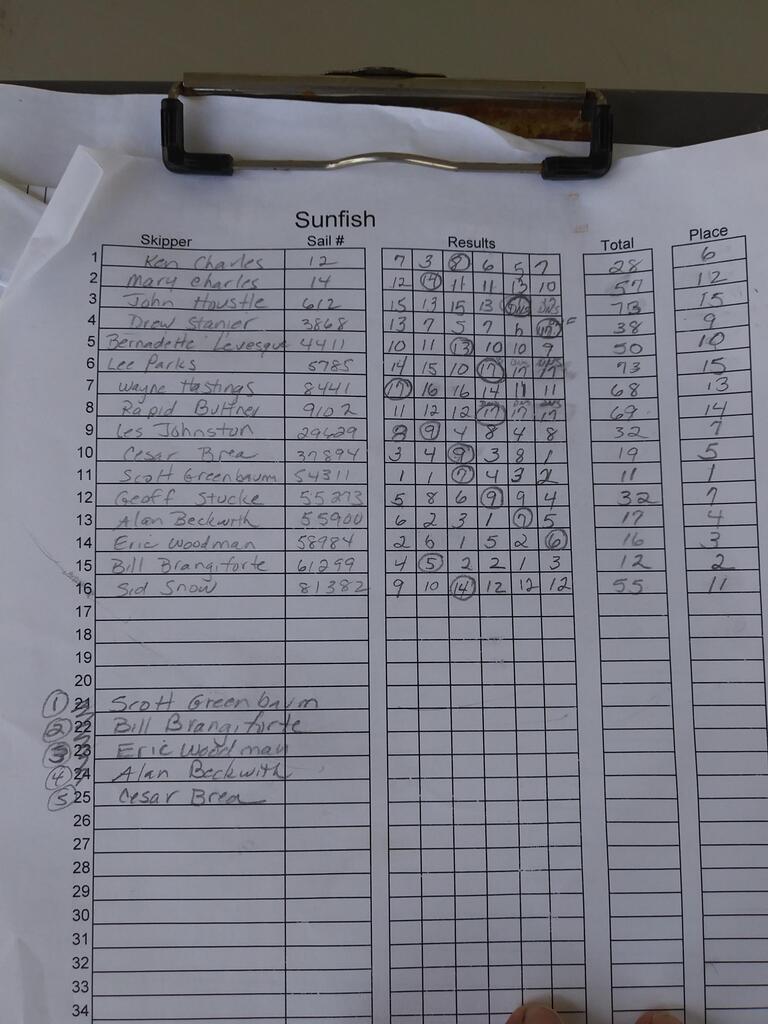 Sunfish
Skipper Sail # Results Total Place
1 Ken Charles 12 7 3 8 6 5 7 28 6
2 Mary Charles 14 12 14 11 11 13 10 57 12
3 John Houstle 612 15 13 15 13 DNS DNS 73 15
4 Drew Stanier 3868 13 7 5 7 6 38 9
5 Bernadette Levesque 4411 10 11 13 10 10 9 50 10
6 Lee Parks 5785 14 15 10 17 17 17 73 15
7 Wayne Hastings 8441 17 16 16 14 11 11 68 13
8 Rapid Buttner 9102 11 12 12 17 17 17 69 14
9 Les Johnston 29429 8 9 4 8 4 8 32 7
10 Cesar Brea 37894 3 4 9 3 8 1 19 5
11 Scott Greenbaum 54311 1 1 7 4 3 2 11 1
12 Geoff Stucke 55273 5 8 6 9 9 4 32 7
13 Alan Beckwith 55900 6 2 3 1 7 5 17 4
14 Eric Woodman 58984 2 6 1 5 2 6 16 3
15 Bill Brangiforte 61299 4 5 2 2 1 3 12 2
16 Sid Snow 81382 9 10 14 12 12 12 55 11
17
18
19
20
1 21 Scott Greenbaum
2 22 Bill Brangiforte
3 23 Eric Woodman
4 24 Alan Beckwith
5 25 Cesar Brea
26
27
28
29
30
31
32
33
34